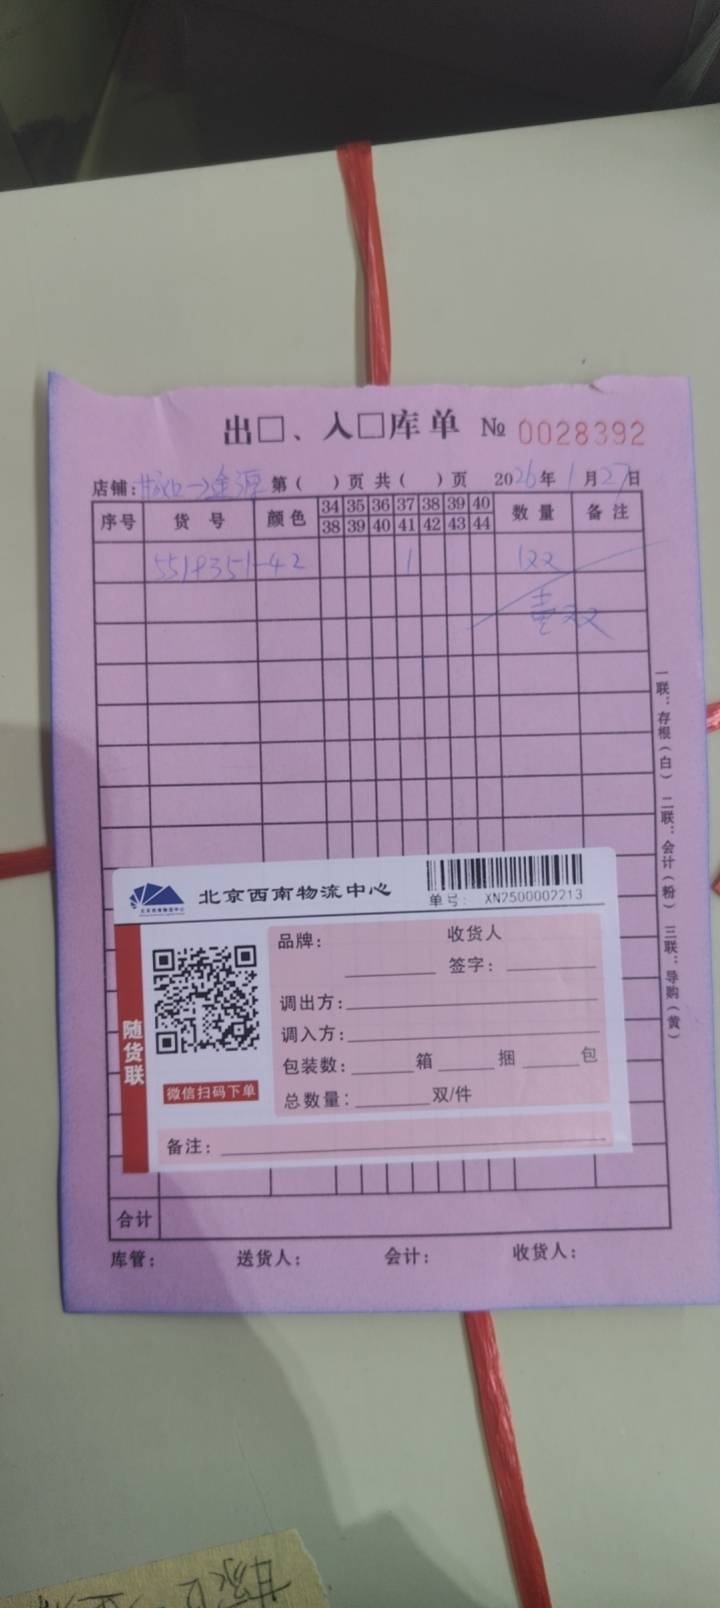 出□、入□库单 № 0028392
店铺: 甘家口→金源 第( )页 共( )页 2026年1月27日
序号 货号 颜色 34 35 36 37 38 39 40 数量 备注
38 39 40 41 42 43 44
5519351-42 1 1双
壹双
一联:存根(白) 二联:会计(粉) 三联:导购(黄)
北京西南物流中心
单号: XN2500002213
随货联
微信扫码下单
品牌: 收货人
签字:
调出方:
调入方:
包装数: 箱 捆 包
总数量: 双/件
备注:
合计
库管: 送货人: 会计: 收货人:
甘家口